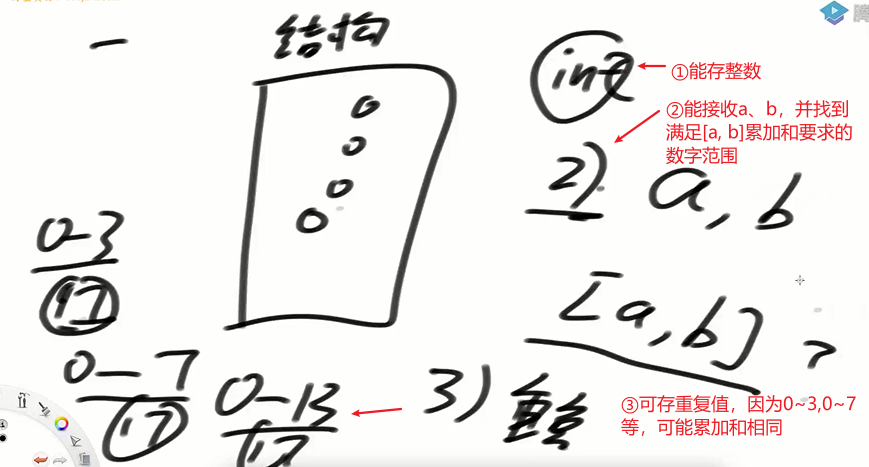 一
结构
int
①能存整数
②能接收a、b，并找到
满足[a, b]累加和要求的
数字范围
2)
a, b
0-3
17
[a, b]
?
0-7
17
0-13
17
3)
③可存重复值，因为0~3,0~7
等，可能累加和相同